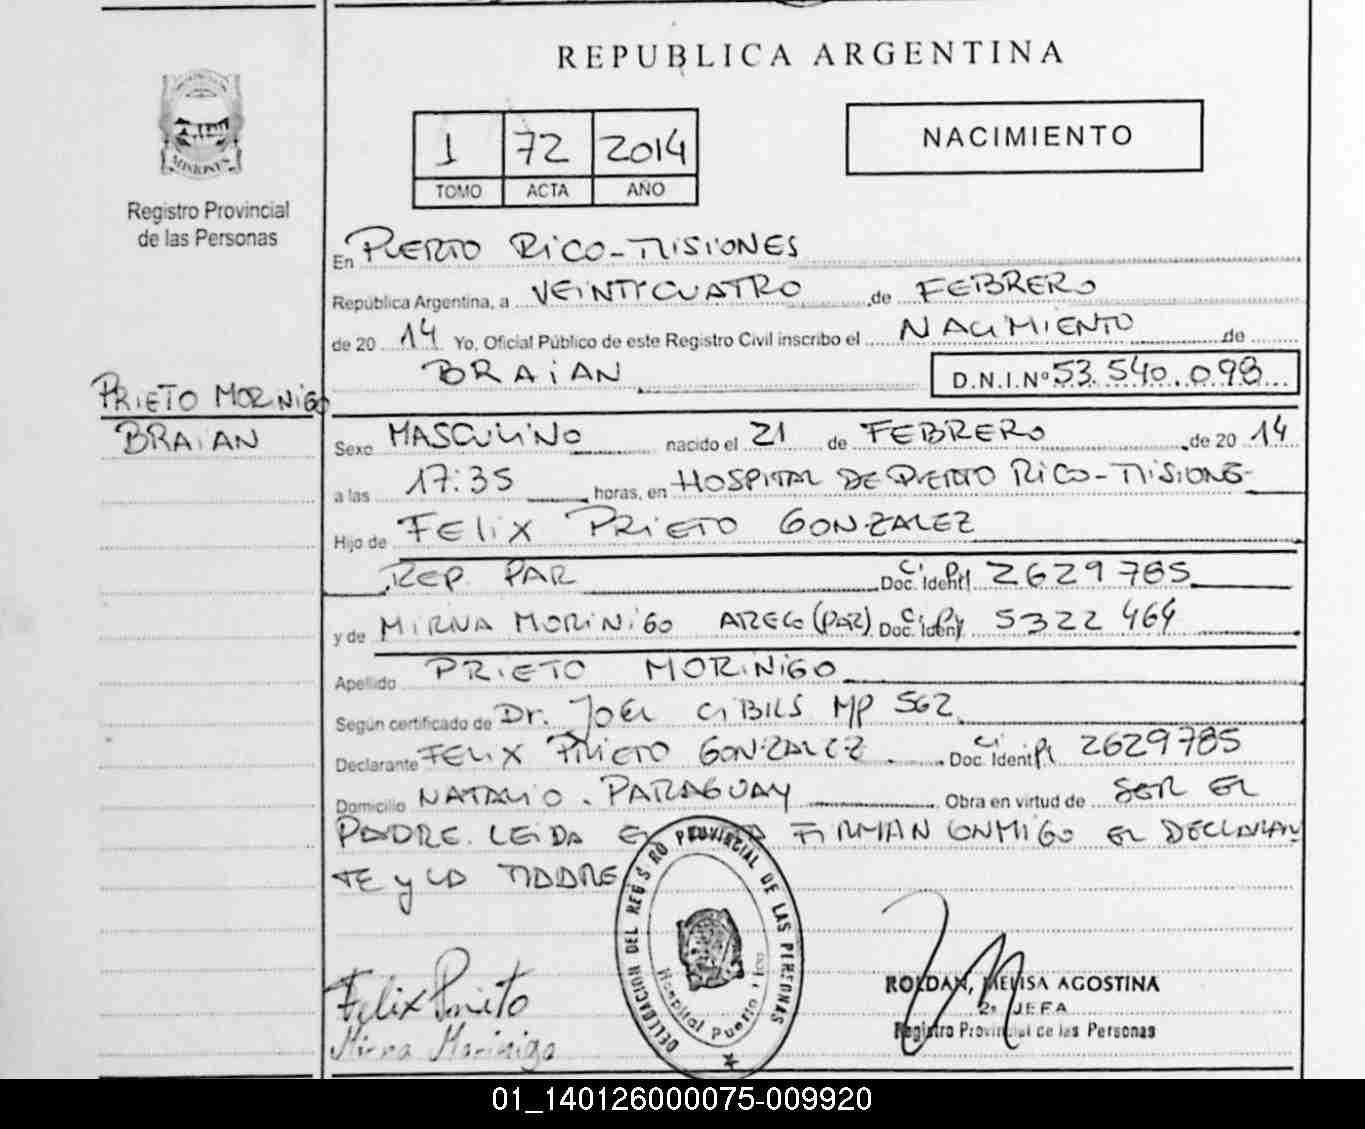 REPUBLICA ARGENTINA
1 72 2014
TOMO ACTA AÑO
NACIMIENTO
MISIONES
Registro Provincial
de las Personas
En PUERTO RICO - MISIONES
República Argentina, a VEINTICUATRO de FEBRERO
de 20 14 Yo, Oficial Público de este Registro Civil inscribo el NACIMIENTO de
BRAIAN D.N.I.Nº 53.540.098
PRIETO MORINIGO
BRAIAN
Sexo MASCULINO nacido el 21 de FEBRERO de 20 14
a las 17:35 horas, en HOSPITAL DE PUERTO RICO - MISIONES
Hijo de FELIX PRIETO GONZALEZ
REP. PAR Doc. Ident. C.I. Py 2629785
y de MIRNA MORINIGO (PAR) Doc. Ident. C.I. Py 5322464
Apellido PRIETO MORINIGO
Según certificado de Dr. JOEL CIBILS MP 562
Declarante FELIX PRIETO GONZALEZ Doc. Ident. CI 2629785
Domicilio NATALIO. PARAGUAY Obra en virtud de SER EL
PADRE. LEIDA EL FIRMAN CONMIGO EL DECLARAN
TE y LA MADRE
DELEGACION DEL REGISTRO PROVINCIAL DE LAS PERSONAS
Hospital Puerto Rico
Felix Prieto
Mirna Morinigo
ROLDAN, MELISA AGOSTINA
2º JEFA
Registro Provincial de las Personas
01_140126000075-009920